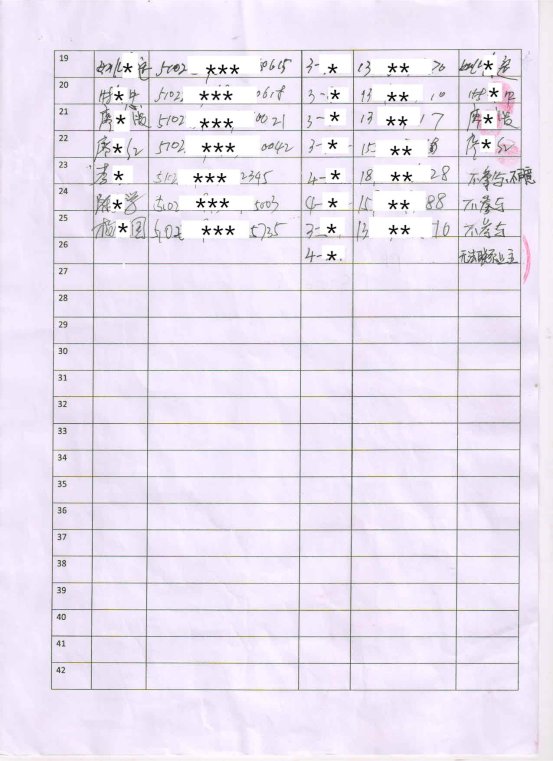 19 5102 *** 0615 3-* 13 ** 76 *
20 * 5102 *** 0618 3-* 13 ** 10 *
21 廖* 5102 *** 0021 3-* 13 ** 17 廖*
22 席*红 5102 *** 0042 3-* 15 ** 席*红
23 李* 5102 *** 2345 4-* 18 ** 28 不参与,不愿意
24 陈*学 5102 *** 5003 4-* 15 ** 88 不参与
25 杨*国 5102 *** 5735 3-* 13 ** 10 不参与
26 4-* 无法联系业主
27
28
29
30
31
32
33
34
35
36
37
38
39
40
41
42